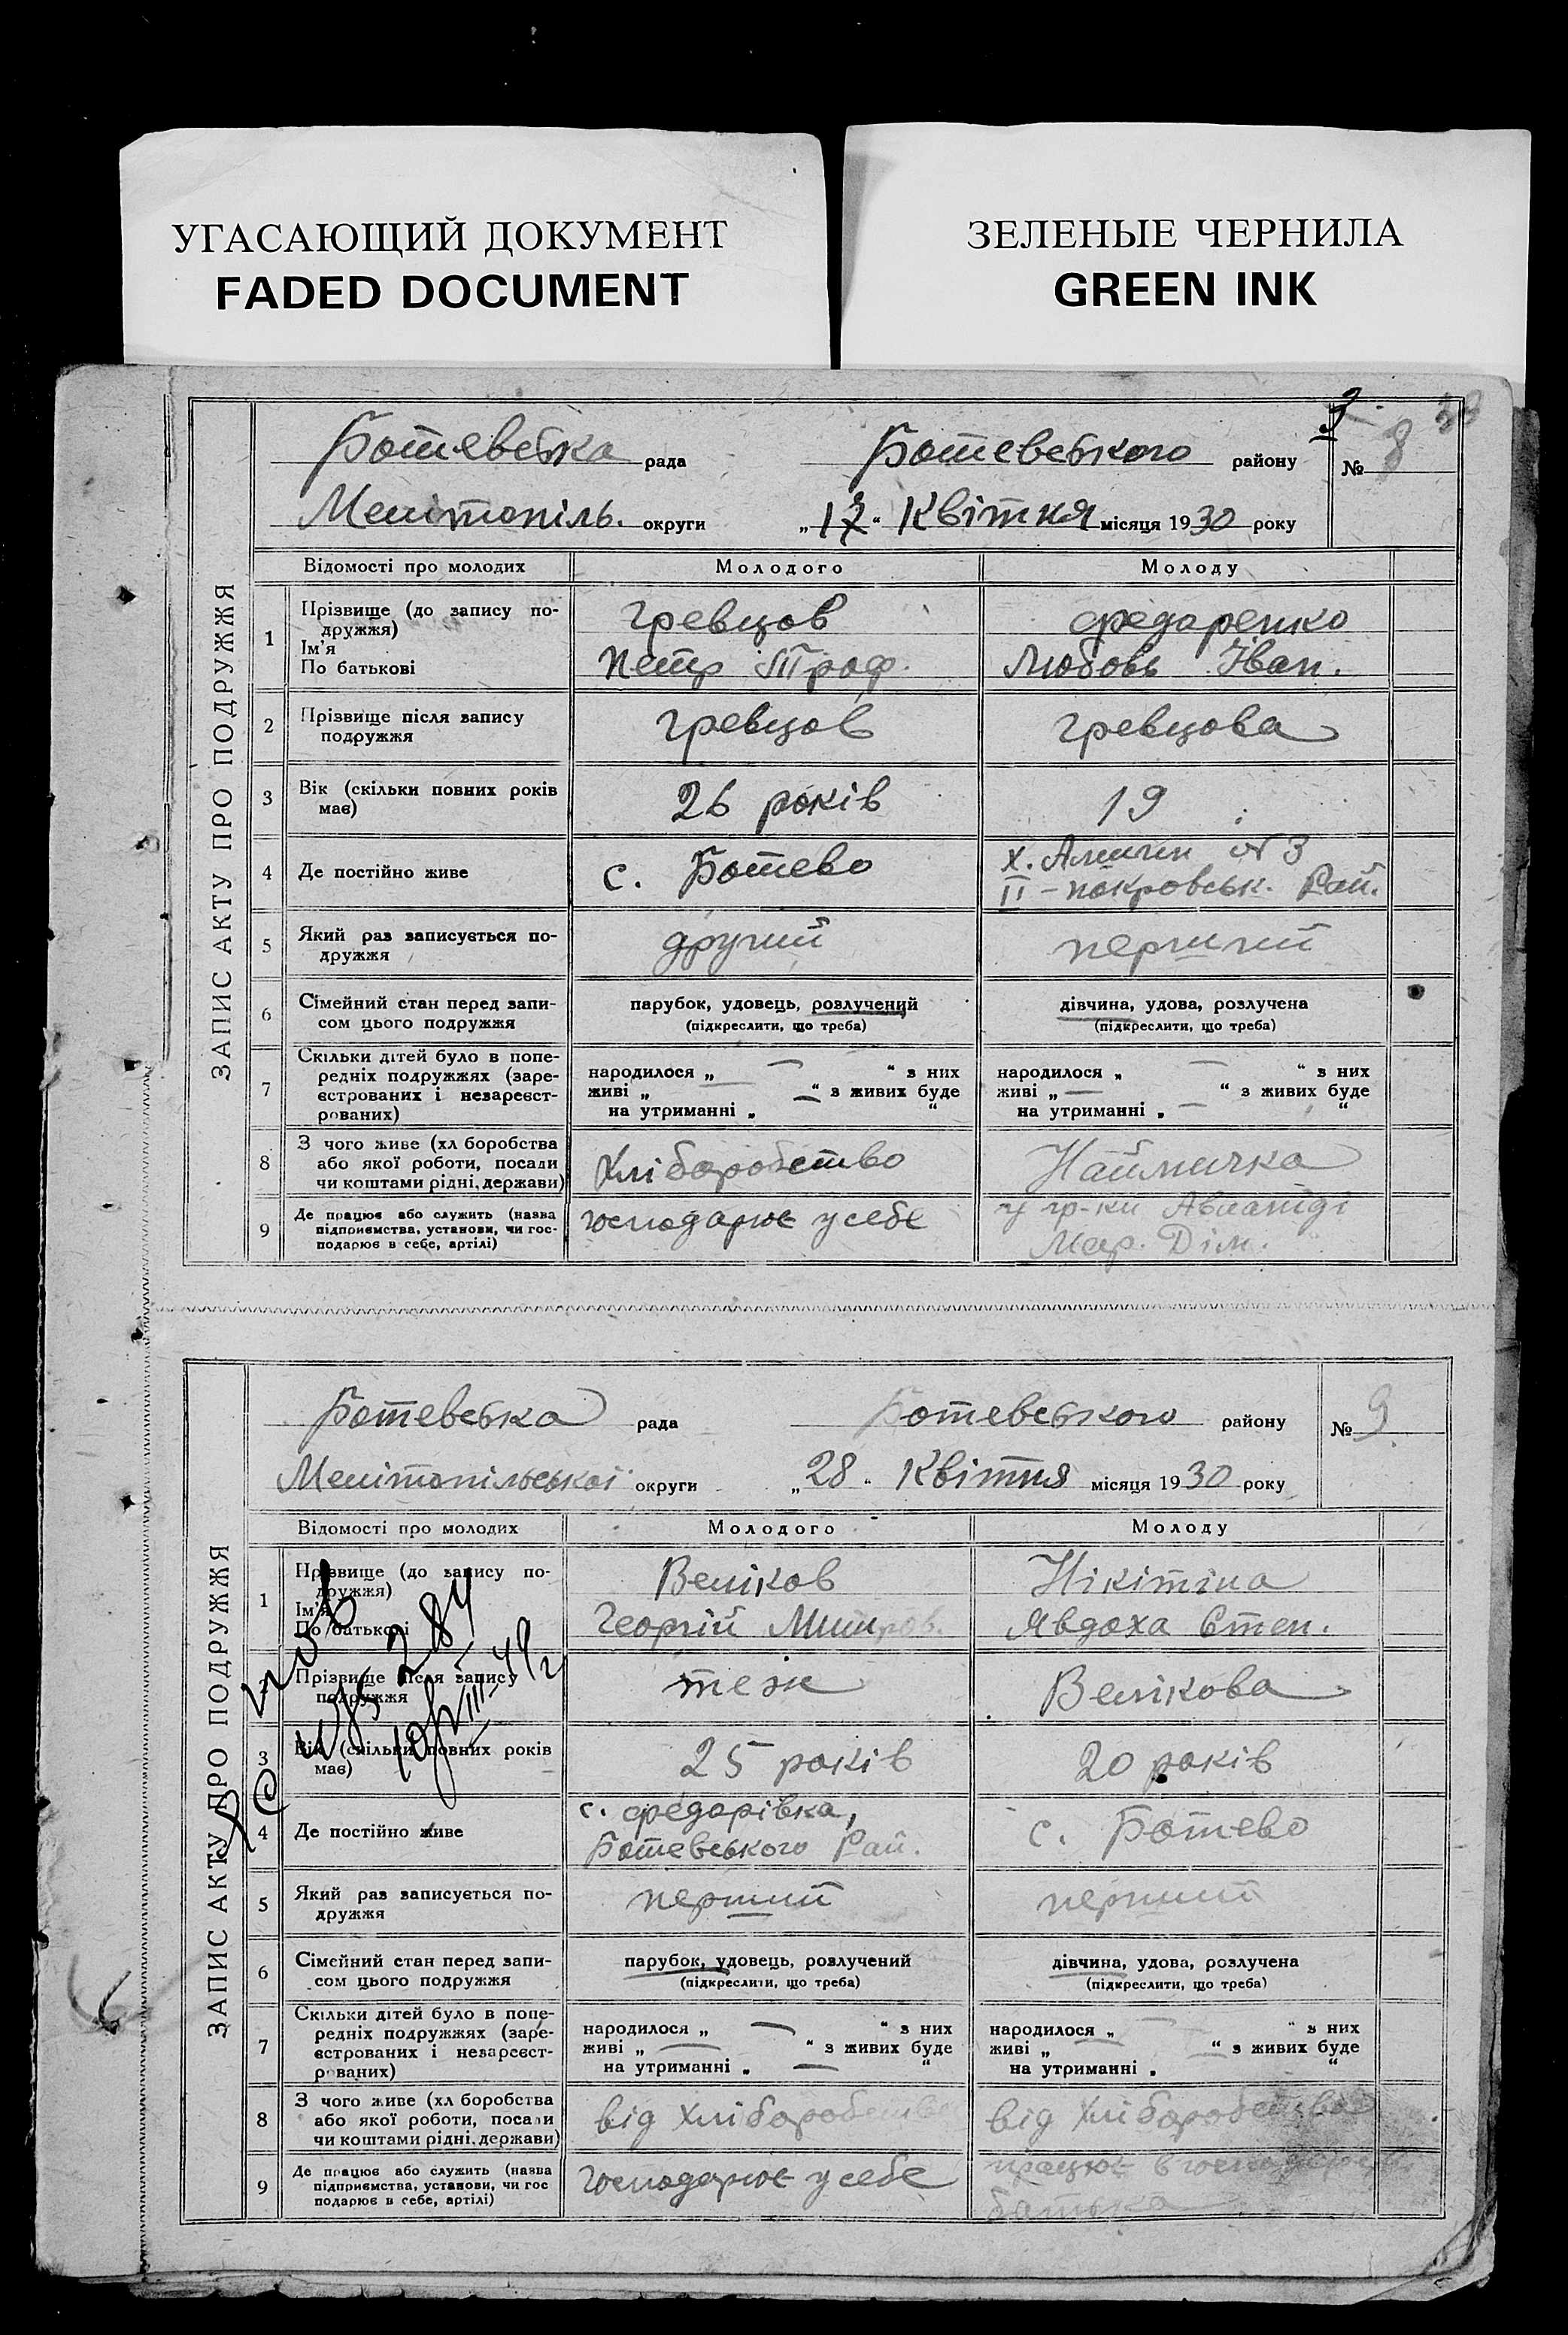 УГАСАЮЩИЙ ДОКУМЕНТ
FADED DOCUMENT
ЗЕЛЕНЫЕ ЧЕРНИЛА
GREEN INK
ЗАПИС АКТУ ПРО ПОДРУЖЖЯ
Ботевська рада Ботевського району № 8
Мелітопіль. округи „ “ Квітня місяця 1930 року
Відомості про молодих Молодого Молоду
1 Прізвище (до запису по-
дружжя)
Ім'я
По батькові
Гревцов
Петр Троф.
Федоренко
Любовь Іван.
2 Прізвище після запису
подружжя
Гревцов
Гревцова
3 Вік (скільки повних років
має)
26 років
19
4 Де постійно живе
с. Ботево
х. № 3
ІІ – покровськ. Рай.
5 Який раз записується по-
дружжя
другий
перший
6 Сімейний стан перед запи-
сом цього подружжя
парубок, удовець, розлучений
(підкреслити, що треба)
дівчина, удова, розлучена
(підкреслити, що треба)
7 Скільки дітей було в попе-
редніх подружжях (заре-
єстрованих і незареєст-
рованих)
народилося „ — “ з них
живі „ — “ з живих буде
на утриманні „ — “
народилося „ — “ з них
живі „ — “ з живих буде
на утриманні „ — “
8 З чого живе (хл боробства
або якої роботи, посади
чи коштами рідні, держави)
Хліборобство
Наймичка
9 Де працює або служить (назва
підприємства, установи, чи гос-
подарює в себе, артілі)
господарює у себе
у гр-ки
Мар. Дім.
ЗАПИС АКТУ ПРО ПОДРУЖЖЯ
Ботевська рада Ботевського району № 9
Мелітопільської округи „28“ Квітня місяця 1930 року
Відомості про молодих Молодого Молоду
1 Прізвище (до запису по-
дружжя)
Ім'я
По батькові
Веліков
Георгій Митров.
Нікітіна
Явдоха Степ.
2 Прізвище після запису
подружжя
теж
Велікова
3 Вік (скільки повних років
має)
25 років
20 років
4 Де постійно живе
с. Федорівка,
Ботевського Рай.
с. Ботево
5 Який раз записується по-
дружжя
перший
перший
6 Сімейний стан перед запи-
сом цього подружжя
парубок, удовець, розлучений
(підкреслити, що треба)
дівчина, удова, розлучена
(підкреслити, що треба)
7 Скільки дітей було в попе-
редніх подружжях (заре-
єстрованих і незареєст-
рованих)
народилося „ — “ з них
живі „ — “ з живих буде
на утриманні „ — “
народилося „ — “ з них
живі „ — “ з живих буде
на утриманні „ “
8 З чого живе (хл боробства
або якої роботи, посади
чи коштами рідні, держави)
від хліборобства
від хліборобства
9 Де працює або служить (назва
підприємства, установи, чи гос
подарює в себе, артілі)
господарює у себе
працює в господарстві
батька